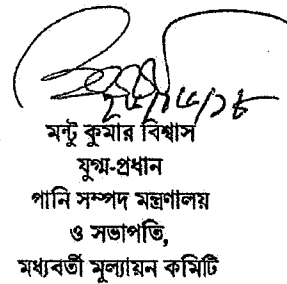 মন্টু কুমার বিশ্বাস
যুগ্ম-প্রধান
পানি সম্পদ মন্ত্রণালয়
ও সভাপতি,
মধ্যবর্তী মূল্যায়ন কমিটি